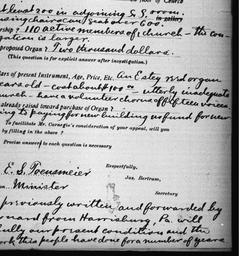 at least 200 in adjoining S.S. room
using chairs can seat over 600.
ship? 110 active members of church - the con-
gation is larger.
proposed Organ? Two thousand dollars.
(This question is for explicit answer after investigation.)
lars of present Instrument, Age, Price, Etc. An Estey reed organ
years old - cost about $100.00 - utterly inadequate
church - have a volunteer chorus of fifteen voices.
already raised toward purchase of Organ?
ing to paying for new building no fund for new
To facilitate Mr. Carnegie's consideration of your appeal, will you
by filling in the above?
Precise answer to each question is necessary
Respectfully,
E. S.
Jas. Bertram,
Minister
Secretary
previously written and forwarded by
from Harrisburg Pa. will
fully our present condition and the
work this people have done for a number of years